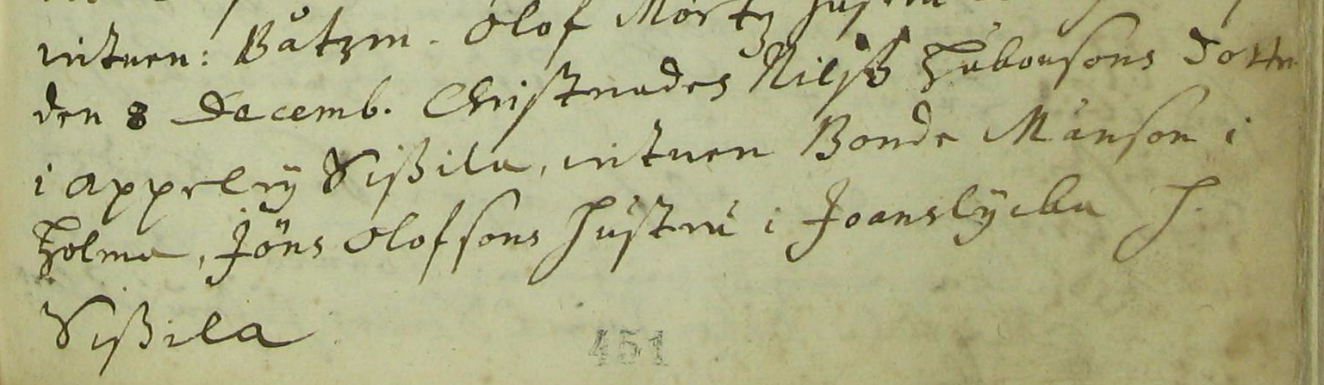 witnen: Båtzm. Olof Mörtz hustru
den 8 Decemb. Christnades Nilß Håkonsons dotter
i Appelrÿ Sißila, witnen Bonde Månson i
Holma, Jöns Olofsons hustru i Joanslÿcka H.
Sißila
451